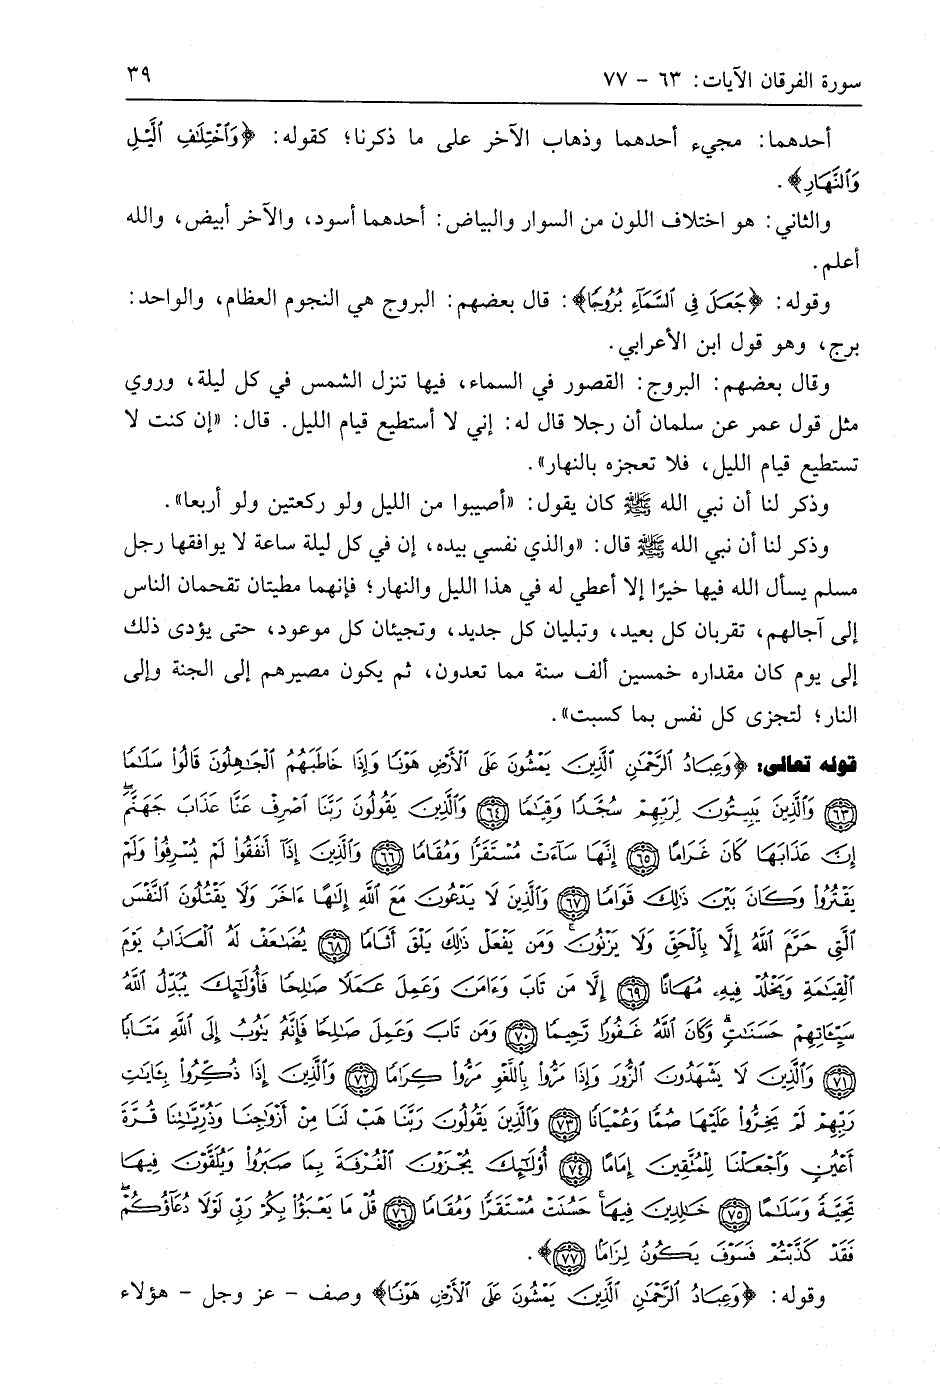 سورة الفرقان الآيات: ٦٣ – ٧٧ ٣٩
أحدهما: مجيء أحدهما وذهاب الآخر على ما ذكرنا؛ كقوله: ﴿وَٱخْتِلَٰفِ ٱلَّيْلِ
وَٱلنَّهَارِ﴾.
والثاني: هو اختلاف اللون من السوار والبياض: أحدهما أسود، والآخر أبيض، والله
أعلم.
وقوله: ﴿جَعَلَ فِى ٱلسَّمَآءِ بُرُوجًا﴾: قال بعضهم: البروج هي النجوم العظام، والواحد:
برج، وهو قول ابن الأعرابي.
وقال بعضهم: البروج: القصور في السماء، فيها تنزل الشمس في كل ليلة، وروي
مثل قول عمر عن سلمان أن رجلا قال له: إني لا أستطيع قيام الليل. قال: «إن كنت لا
تستطيع قيام الليل، فلا تعجزه بالنهار».
وذكر لنا أن نبي الله ﷺ كان يقول: «أصيبوا من الليل ولو ركعتين ولو أربعا».
وذكر لنا أن نبي الله ﷺ قال: «والذي نفسي بيده، إن في كل ليلة ساعة لا يوافقها رجل
مسلم يسأل الله فيها خيرًا إلا أعطي له في هذا الليل والنهار؛ فإنهما مطيتان تقحمان الناس
إلى آجالهم، تقربان كل بعيد، وتبليان كل جديد، وتجيئان كل موعود، حتى يؤدى ذلك
إلى يوم كان مقداره خمسين ألف سنة مما تعدون، ثم يكون مصيرهم إلى الجنة وإلى
النار؛ لتجزى كل نفس بما كسبت».
قوله تعالى: ﴿وَعِبَادُ ٱلرَّحْمَٰنِ ٱلَّذِينَ يَمْشُونَ عَلَى ٱلْأَرْضِ هَوْنًا وَإِذَا خَاطَبَهُمُ ٱلْجَٰهِلُونَ قَالُوا۟ سَلَٰمًا
﴿٦٣﴾ وَٱلَّذِينَ يَبِيتُونَ لِرَبِّهِمْ سُجَّدًا وَقِيَٰمًا ﴿٦٤﴾ وَٱلَّذِينَ يَقُولُونَ رَبَّنَا ٱصْرِفْ عَنَّا عَذَابَ جَهَنَّمَ ۖ
إِنَّ عَذَابَهَا كَانَ غَرَامًا ﴿٦٥﴾ إِنَّهَا سَآءَتْ مُسْتَقَرًّا وَمُقَامًا ﴿٦٦﴾ وَٱلَّذِينَ إِذَآ أَنفَقُوا۟ لَمْ يُسْرِفُوا۟ وَلَمْ
يَقْتُرُوا۟ وَكَانَ بَيْنَ ذَٰلِكَ قَوَامًا ﴿٦٧﴾ وَٱلَّذِينَ لَا يَدْعُونَ مَعَ ٱللَّهِ إِلَٰهًا ءَاخَرَ وَلَا يَقْتُلُونَ ٱلنَّفْسَ
ٱلَّتِى حَرَّمَ ٱللَّهُ إِلَّا بِٱلْحَقِّ وَلَا يَزْنُونَ ۚ وَمَن يَفْعَلْ ذَٰلِكَ يَلْقَ أَثَامًا ﴿٦٨﴾ يُضَٰعَفْ لَهُ ٱلْعَذَابُ يَوْمَ
ٱلْقِيَٰمَةِ وَيَخْلُدْ فِيهِۦ مُهَانًا ﴿٦٩﴾ إِلَّا مَن تَابَ وَءَامَنَ وَعَمِلَ عَمَلًا صَٰلِحًا فَأُو۟لَٰٓئِكَ يُبَدِّلُ ٱللَّهُ
سَيِّـَٔاتِهِمْ حَسَنَٰتٍ ۗ وَكَانَ ٱللَّهُ غَفُورًا رَّحِيمًا ﴿٧٠﴾ وَمَن تَابَ وَعَمِلَ صَٰلِحًا فَإِنَّهُۥ يَتُوبُ إِلَى ٱللَّهِ مَتَابًا
﴿٧١﴾ وَٱلَّذِينَ لَا يَشْهَدُونَ ٱلزُّورَ وَإِذَا مَرُّوا۟ بِٱللَّغْوِ مَرُّوا۟ كِرَامًا ﴿٧٢﴾ وَٱلَّذِينَ إِذَا ذُكِّرُوا۟ بِـَٔايَٰتِ
رَبِّهِمْ لَمْ يَخِرُّوا۟ عَلَيْهَا صُمًّا وَعُمْيَانًا ﴿٧٣﴾ وَٱلَّذِينَ يَقُولُونَ رَبَّنَا هَبْ لَنَا مِنْ أَزْوَٰجِنَا وَذُرِّيَّٰتِنَا قُرَّةَ
أَعْيُنٍ وَٱجْعَلْنَا لِلْمُتَّقِينَ إِمَامًا ﴿٧٤﴾ أُو۟لَٰٓئِكَ يُجْزَوْنَ ٱلْغُرْفَةَ بِمَا صَبَرُوا۟ وَيُلَقَّوْنَ فِيهَا
تَحِيَّةً وَسَلَٰمًا ﴿٧٥﴾ خَٰلِدِينَ فِيهَا ۚ حَسُنَتْ مُسْتَقَرًّا وَمُقَامًا ﴿٧٦﴾ قُلْ مَا يَعْبَؤُا۟ بِكُمْ رَبِّى لَوْلَا دُعَآؤُكُمْ ۖ
فَقَدْ كَذَّبْتُمْ فَسَوْفَ يَكُونُ لِزَامًا ﴿٧٧﴾﴾.
وقوله: ﴿وَعِبَادُ ٱلرَّحْمَٰنِ ٱلَّذِينَ يَمْشُونَ عَلَى ٱلْأَرْضِ هَوْنًا﴾ وصف – عز وجل – هؤلاء